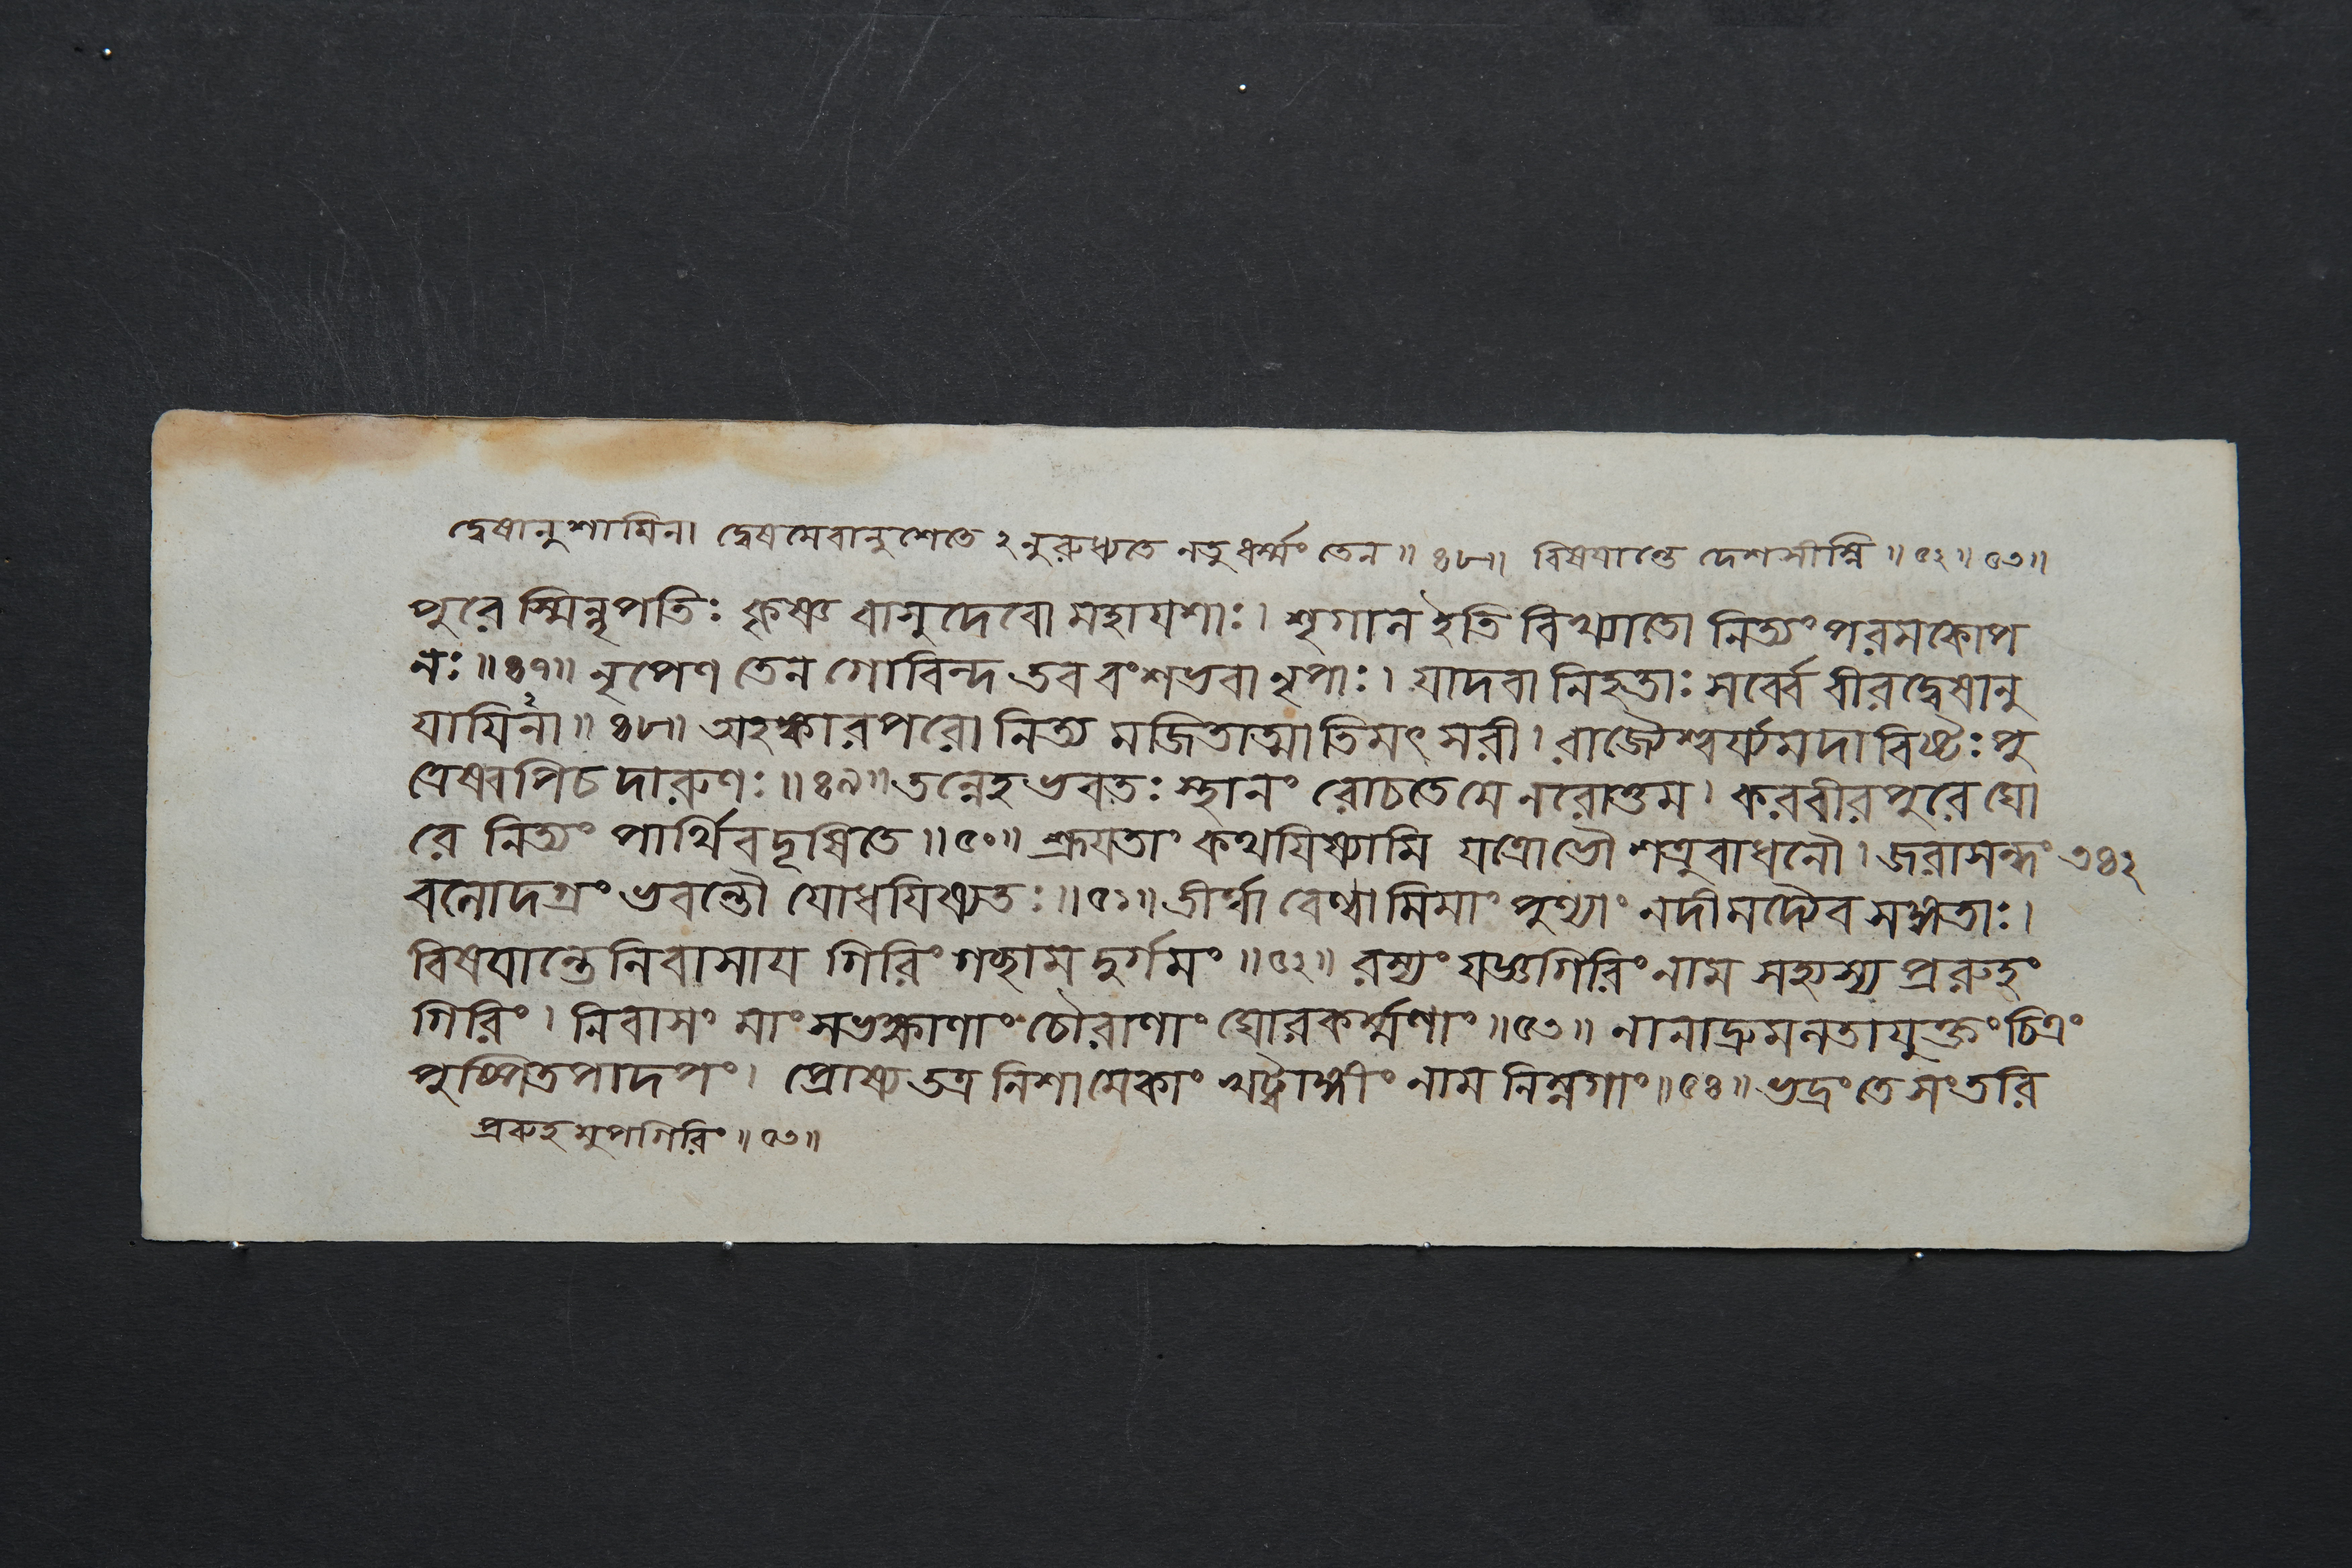 দ্বেষানুশায়িনা দ্বেষমেবানুশেতে ২নুরুধ্যতে নতু ধর্ম্মং তেন॥ ৪৮॥ বিষয়ান্তে দেশসীম্নি॥ ৫২॥ ৫৩॥
পুরেস্মিন্নৃপতিঃ কৃষ্ণ বাসুদেবো মহাযশাঃ। শৃগাল ইতি বিখ্যাতো নিত্যং পরমকোপ
নঃ॥৪৭॥ নৃপেণ তেন গোবিন্দ তব বংশভবা নৃপাঃ। যাদবা নিহতাঃ সর্ব্বে বীরদ্বেষানু
যায়িনা॥ ৪৮॥ অহঙ্কারপরো নিত্য মজিতাত্মাতিমৎসরী। রাজ্যৈশ্বর্য্যমদাবিষ্টঃ পু
ত্রেষ্বপিচ দারুণঃ॥৪৯॥ তন্নেহ ভবতঃ স্থানং রোচতে মে নরোত্তম। করবীরপুরে ঘো
রে নিত্যং পার্থিবদূষিতে॥৫০॥ শ্রূয়তাং কথয়িষ্যামি যত্রোভৌ শত্রুবাধনৌ। জরাসন্ধং ৩৪২
বলোদগ্রং ভবন্তৌ যোধয়িষ্যতঃ॥৫১॥ তীর্ত্বা বেণ্বামিমাং পুণ্যাং নদীমদ্যৈব সঙ্গতাঃ।
বিষয়ান্তে নিবাসায় গিরিং গচ্ছাম দুর্গমং॥৫২॥ রম্যং যজ্ঞগিরিং নাম সহ্যস্য প্ররুহং
গিরিং। নিবাসং মাংসভক্ষাণাং চৌরাণাং ঘোরকর্ম্মণাং॥৫৩॥ নানাদ্রুমলতাযুক্তং চিত্রং
পুষ্পিতপাদপং। প্রোষ্য তত্র নিশামেকাং খট্বাঙ্গীং নাম নিম্নগাং॥৫৪॥ ভদ্রং তে সংতরি
প্ররুহমুপগিরিং॥৫৩॥